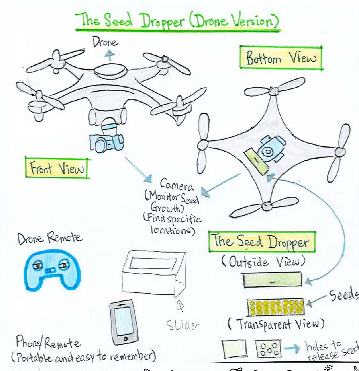 The Seed Dropper (Drone Version)
Drone
Bottom View
Front View
Camera
(Monitor Seed
Growth)
(Find specific
locations)
Drone Remote
The Seed Dropper
(Outside View)
Slider
Seeds
(Transparent View)
Phone/Remote
(Portable and easy to remember)
holes to
release seed